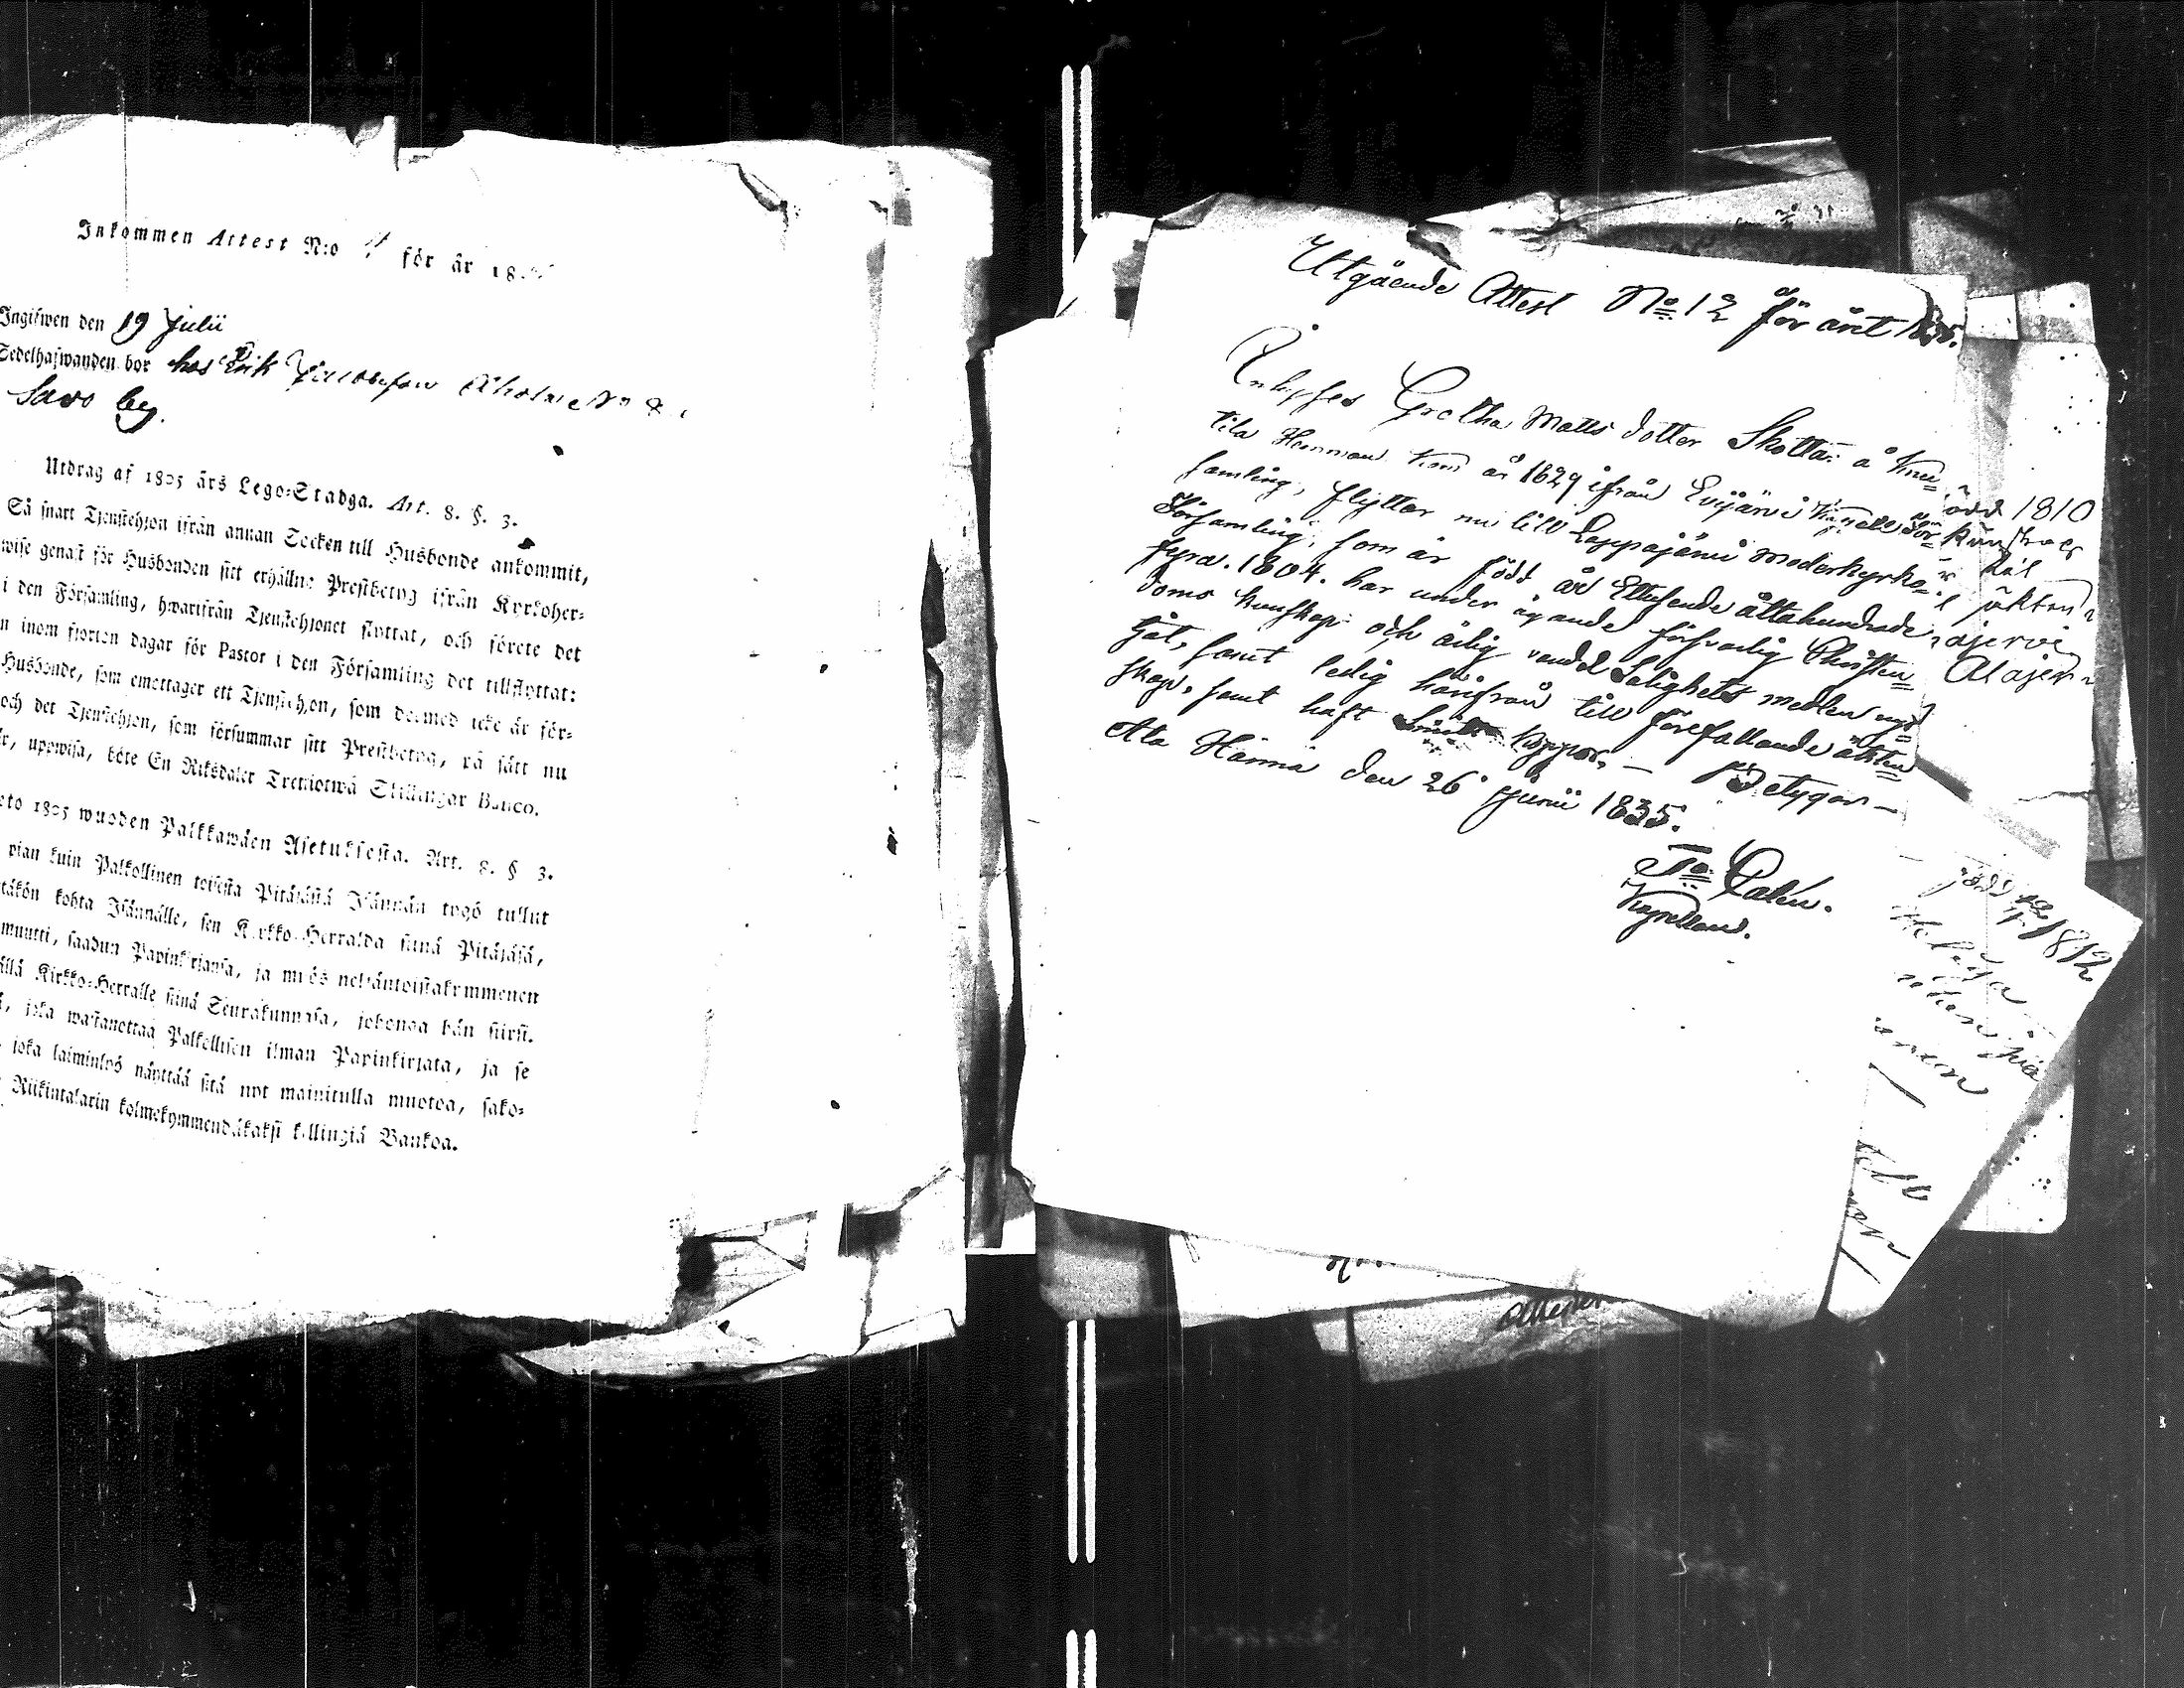 Inkommen Attest N:o för år 18
Ingifwen den 19 Julii
Sedelhafwanden bor hos Erik
Savo by.
Utdrag af 1805 års Lego-Stadga. Art. 8. §. 3.
Så snart Tjenstehjon ifrån annan Socken till Husbonde ankommit,
wise genast för Husbonden sitt erhållne Prestbetyg ifrån Kyrkoher=
i den Församling, hwarifrån Tjenstehjonet flyttat, och förete det
n inom fjorton dagar för Pastor i den Församling det tillflyttat:
Husbonde, som emottager ett Tjenstehjon, som dermed icke är för=
och det Tjenstehjon, som försummar sitt Prestbetyg, på sätt nu
r, uppwisa, böte En Riksdaler Trettiotwå Skillingar Banco.
eto 1805 wuoden Palkkawäen Asetuksesta. Art. 8. § 3.
pian kuin Palkollinen toisesta Pitäjästä Isännän tygö tullut
täkön kohta Isännälle, sen Kirkko-Herralda siinä Pitäjäsä,
muutti, saadun Papinkirjansa, ja myös neljäntoistakymmenen
ällä Kirkko-Herralle siinä Seurakunnasa, johonga hän siirsi.
, joka wastanottaa Palkollisen ilman Papinkirjata, ja se
joka laiminlyö näyttää sitä nyt mainitulla muotoa, sako=
Riikintalarin kolmekymmendäkaksi killingiä Bankoa.
Utgående Attest No 12 för året 1835.
Gretha Matts dotter Skotta å Knu=
tila Hemman kom år 1829 ifrån Evijärvi Kapell För=
samling, flyttar nu till Lappajärvi moderkyrko
Församling, som är född år Ettusende åttahundrade
fyra. 1804. har under ägande försvarlig Christen=
doms kunskap och ärlig vandel Salighets medlen nyt=
tjat, samt ledig härifrån till förefallande äkten=
skap, samt haft koppor, — Betygar —
Ala Härmä den 26 Junii 1835.
Palén.
Kapellan.
född 1810
äkten
ajervi
Alajer
född 1812
Attester